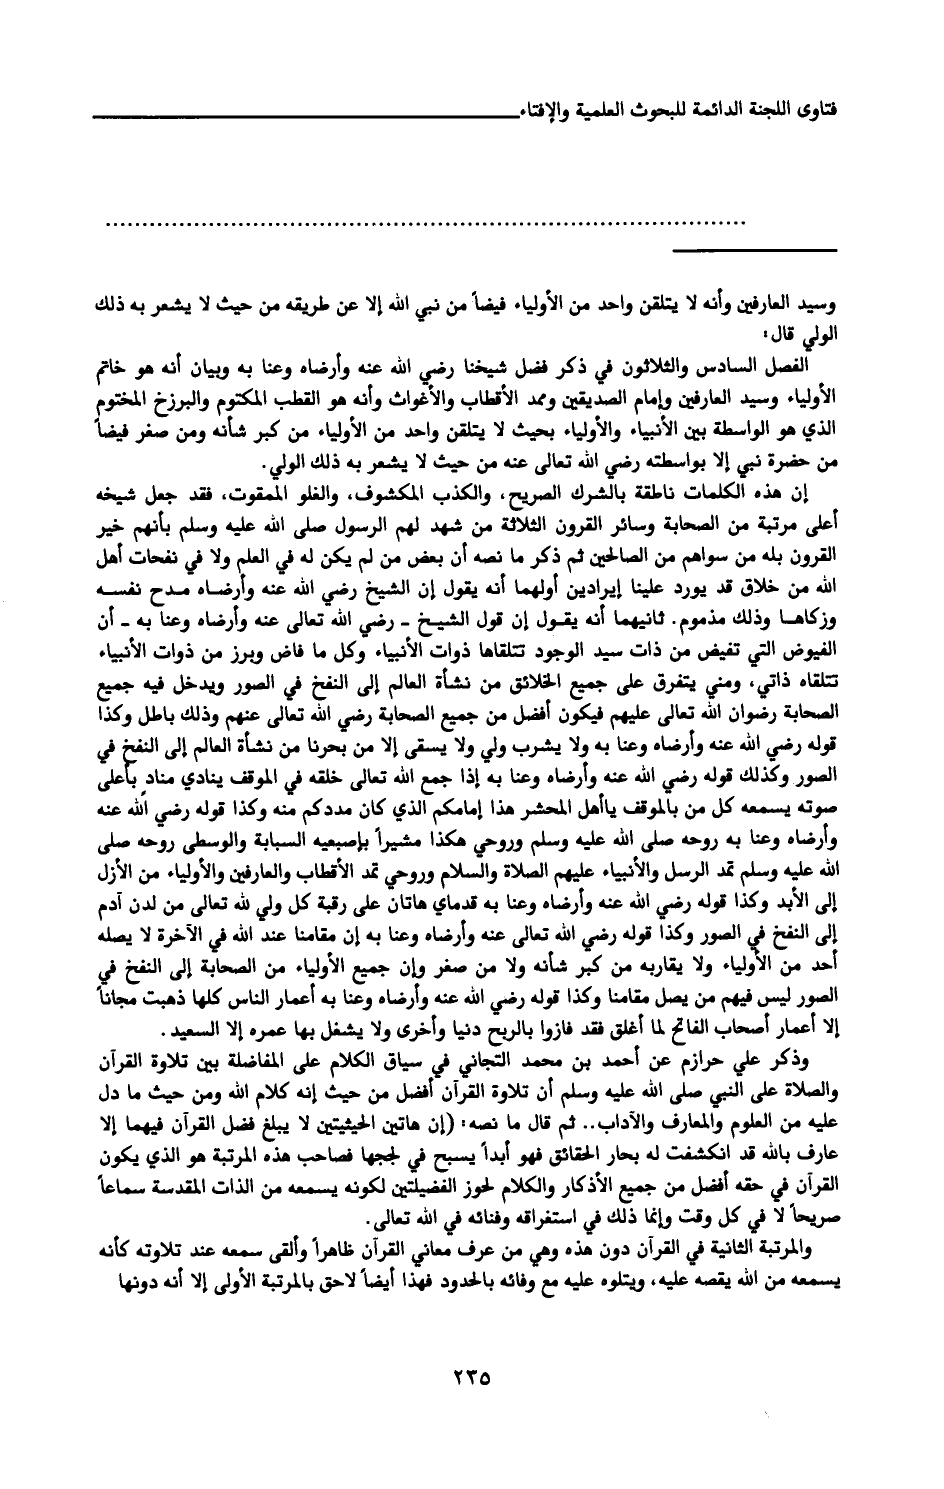 فتاوى اللجنة الدائمة للبحوث العلمية والإفتاء
وسيد العارفين وأنه لا يتلقن واحد من الأولياء فيضاً من نبي الله إلا عن طريقه من حيث لا يشعر به ذلك
الولي قال:
الفصل السادس والثلاثون في ذكر فضل شيخنا رضي الله عنه وأرضاه وعنا به وبيان أنه هو خاتم
الأولياء وسيد العارفين وإمام الصديقين وممد الأقطاب والأغواث وأنه هو القطب المكتوم والبرزخ المختوم
الذي هو الواسطة بين الأنبياء والأولياء بحيث لا يتلقن واحد من الأولياء من كبر شأنه ومن صغر فيضاً
من حضرة نبي إلا بواسطته رضي الله تعالى عنه من حيث لا يشعر به ذلك الولي.
إن هذه الكلمات ناطقة بالشرك الصريح، والكذب المكشوف، والغلو الممقوت، فقد جعل شيخه
أعلى مرتبة من الصحابة وسائر القرون الثلاثة من شهد لهم الرسول صلى الله عليه وسلم بأنهم خير
القرون بله من سواهم من الصالحين ثم ذكر ما نصه أن بعض من لم يكن له في العلم ولا في نفحات أهل
الله من خلاق قد يورد علينا إيرادين أولهما أنه يقول إن الشيخ رضي الله عنه وأرضاه مدح نفسه
وزكاها وذلك مذموم. ثانيهما أنه يقول إن قول الشيخ - رضي الله تعالى عنه وأرضاه وعنا به - أن
الفيوض التي تفيض من ذات سيد الوجود تتلقاها ذوات الأنبياء وكل ما فاض وبرز من ذوات الأنبياء
تتلقاه ذاتي، ومني يتفرق على جميع الخلائق من نشأة العالم إلى النفخ في الصور ويدخل فيه جميع
الصحابة رضوان الله تعالى عليهم فيكون أفضل من جميع الصحابة رضي الله تعالى عنهم وذلك باطل وكذا
قوله رضي الله عنه وأرضاه وعنا به ولا يشرب ولي ولا يسقى إلا من بحرنا من نشأة العالم إلى النفخ في
الصور وكذلك قوله رضي الله عنه وأرضاه وعنا به إذا جمع الله تعالى خلقه في الموقف ينادي مناد بأعلى
صوته يسمعه كل من بالموقف ياأهل المحشر هذا إمامكم الذي كان مددكم منه وكذا قوله رضي الله عنه
وأرضاه وعنا به روحه صلى الله عليه وسلم وروحي هكذا مشيراً بإصبعيه السبابة والوسطى روحه صلى
الله عليه وسلم تمد الرسل والأنبياء عليهم الصلاة والسلام وروحي تمد الأقطاب والعارفين والأولياء من الأزل
إلى الأبد وكذا قوله رضي الله عنه وأرضاه وعنا به قدماي هاتان على رقبة كل ولي لله تعالى من لدن آدم
إلى النفخ في الصور وكذا قوله رضي الله تعالى عنه وأرضاه وعنا به إن مقامنا عند الله في الآخرة لا يصله
أحد من الأولياء ولا يقاربه من كبر شأنه ولا من صغر وإن جميع الأولياء من الصحابة إلى النفخ في
الصور ليس فيهم من يصل مقامنا وكذا قوله رضي الله عنه وأرضاه وعنا به أعمار الناس كلها ذهبت مجاناً
إلا أعمار أصحاب الفاتح لما أغلق فقد فازوا بالربح دنيا وأخرى ولا يشغل بها عمره إلا السعيد.
وذكر علي حرازم عن أحمد بن محمد التجاني في سياق الكلام على المفاضلة بين تلاوة القرآن
والصلاة على النبي صلى الله عليه وسلم أن تلاوة القرآن أفضل من حيث إنه كلام الله ومن حيث ما دل
عليه من العلوم والمعارف والآداب.. ثم قال ما نصه: (إن هاتين الحيثيتين لا يبلغ فضل القرآن فيهما إلا
عارف بالله قد انكشفت له بحار الحقائق فهو أبداً يسبح في لججها فصاحب هذه المرتبة هو الذي يكون
القرآن في حقه أفضل من جميع الأذكار والكلام لحوز الفضيلتين لكونه يسمعه من الذات المقدسة سماعاً
صريحاً لا في كل وقت وإنما ذلك في استغراقه وفنائه في الله تعالى.
والمرتبة الثانية في القرآن دون هذه وهي من عرف معاني القرآن ظاهراً وألقى سمعه عند تلاوته كأنه
يسمعه من الله يقصه عليه، ويتلوه عليه مع وفائه بالحدود فهذا أيضاً لاحق بالمرتبة الأولى إلا أنه دونها
٢٣٥